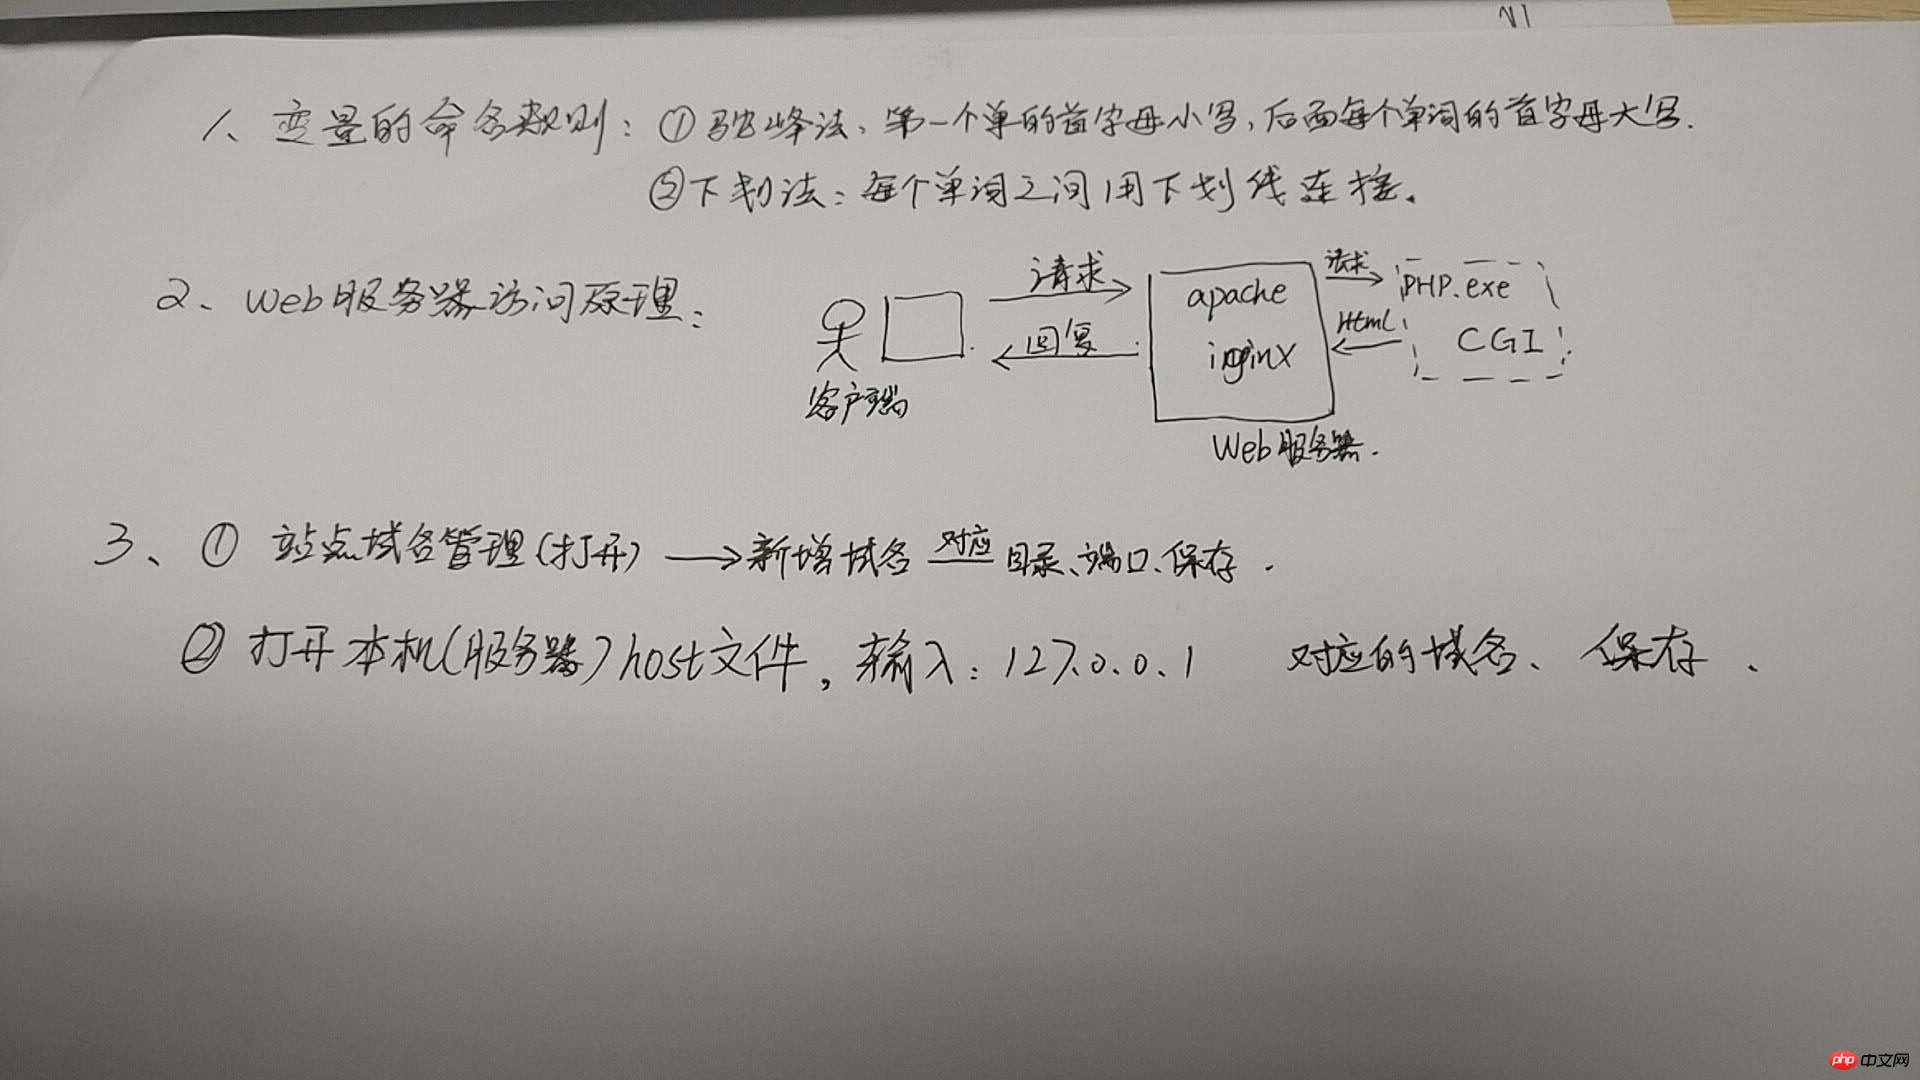 1、变量的命名规则：①驼峰法，第一个单的首字母小写，后面每个单词的首字母大写.
②下划法：每个单词之间用下划线连接。
2、web服务器访问原理：
请求
回复
客户端
apache
Web服务器.
请求
Html
PHP.exe
CGI
3、① 站点域名管理(打开) → 新增域名 对应 目录、端口、保存.
② 打开本机(服务器)host文件，输入：127.0.0.1 对应的域名、保存.
php 中文网